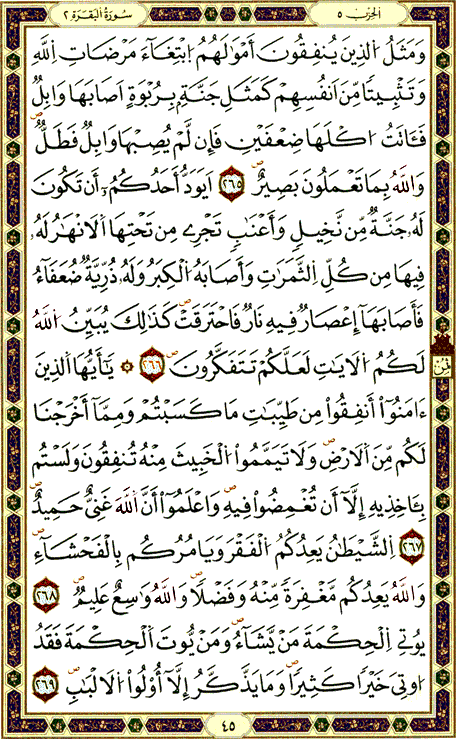 سُورَةُ الْبَقَرَةِ ٢
الحزب ٥
وَمَثَلُ الذِينَ يُنفِقُونَ أَمْوَٰلَهُمُ ابْتِغَآءَ مَرْضَاتِ اِللَّهِ
وَتَثْبِيتاً مِّنَ اَنفُسِهِمْ كَمَثَلِ جَنَّةِۢ بِرُبْوَةٍ اَصَابَهَا وَابِلٌ
فَـَٔاتَتُ اُكْلَهَا ضِعْفَيْنِ فَإِن لَّمْ يُصِبْهَا وَابِلٌ فَطَلٌّ
وَاللَّهُ بِمَا تَعْمَلُونَ بَصِيرٌ ٢٦٥ اَيَوَدُّ أَحَدُكُمُۥٓ أَن تَكُونَ
لَهُۥ جَنَّةٌ مِّن نَّخِيلٍ وَأَعْنَٰبٍ تَجْرِے مِن تَحْتِهَا اَلَانْهَٰرُ لَهُۥ
فِيهَا مِن كُلِّ اِلثَّمَرَٰتِ وَأَصَابَهُ الْكِبَرُ وَلَهُۥ ذُرِّيَّةٌ ضُعَفَآءُ
فَأَصَابَهَآ إِعْصَارٌ فِيهِ نَارٌ فَاحْتَرَقَتْ كَذَٰلِكَ يُبَيِّنُ اُللَّهُ
لَكُمُ اُلَايَٰتِ لَعَلَّكُمْ تَتَفَكَّرُونَ ٢٦٦ ۞ يَٰٓأَيُّهَا اَلذِينَ
ءَامَنُوٓاْ أَنفِقُواْ مِن طَيِّبَٰتِ مَا كَسَبْتُمْ وَمِمَّآ أَخْرَجْنَا
لَكُم مِّنَ اَلَارْضِ وَلَا تَيَمَّمُواْ اُلْخَبِيثَ مِنْهُ تُنفِقُونَ وَلَسْتُم
بِـَٔاخِذِيهِ إِلَّآ أَن تُغْمِضُواْ فِيهِ وَاعْلَمُوٓاْ أَنَّ اَللَّهَ غَنِيٌّ حَمِيدٌ
٢٦٧ اِلشَّيْطَٰنُ يَعِدُكُمُ اُلْفَقْرَ وَيَامُرُكُم بِالْفَحْشَآءِ
وَاللَّهُ يَعِدُكُم مَّغْفِرَةً مِّنْهُ وَفَضْلًا وَاللَّهُ وَٰسِعٌ عَلِيمٌ ٢٦٨
يُوتِے اِلْحِكْمَةَ مَنْ يَّشَآءُ وَمَنْ يُّوتَ اَلْحِكْمَةَ فَقَدُ
اوتِيَ خَيْراً كَثِيراً وَمَا يَذَّكَّرُ إِلَّآ أُوْلُواْ اُلَالْبَٰبِ ٢٦٩
٤٥